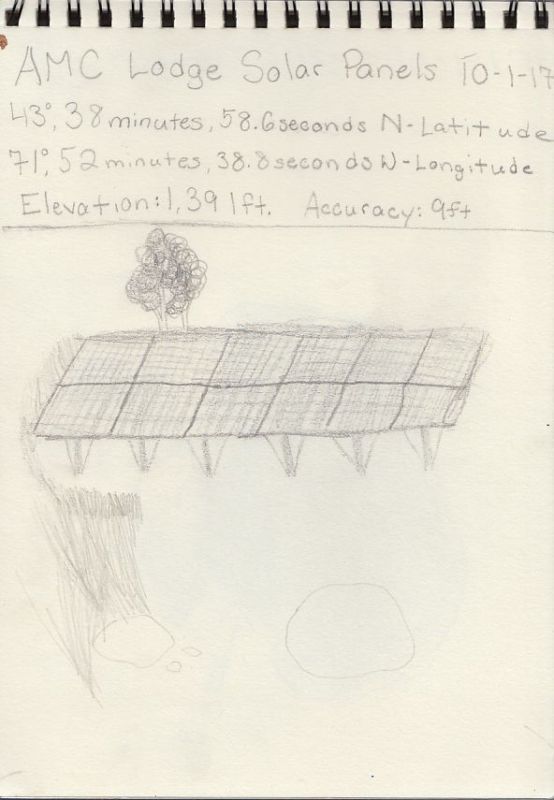 AMC Lodge Solar Panels 10-1-17
43°, 38 minutes, 58.6 seconds N-Latitude
71°, 52 minutes, 38.8 seconds W-Longitude
Elevation: 1,391 ft. Accuracy: 9ft